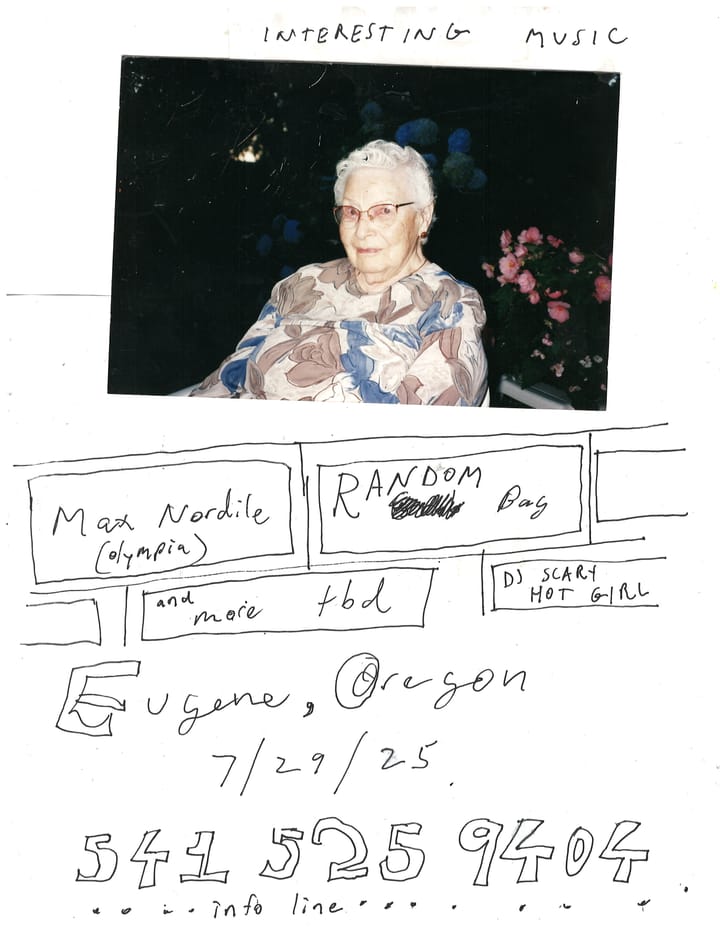 INTERESTING MUSIC
Max Nordile
(olympia)
RANDOM Bag
and more tbd
DJ SCARY
HOT GIRL
Eugene, Oregon
7/29/25.
541 525 9404
info line